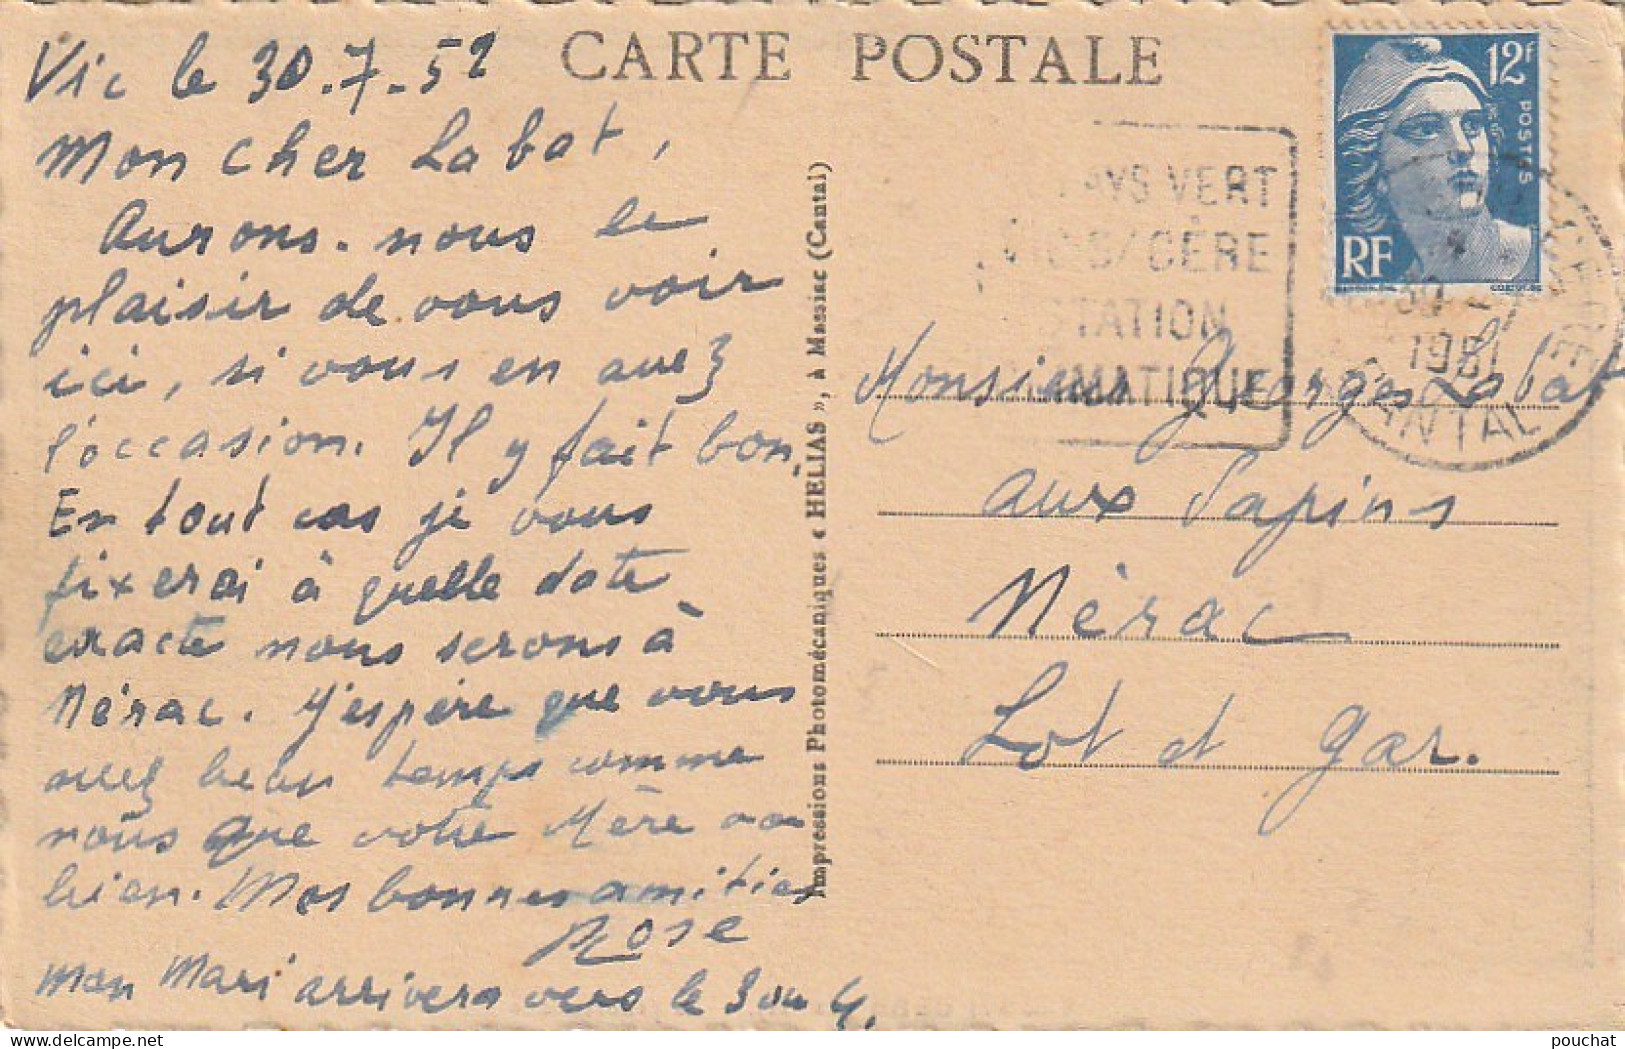 CARTE POSTALE
Vic le 30.7.51
Mon cher Labat,
Aurons-nous le
plaisir de vous voir
ici, si vous en avez
l'occasion. Il y fait bon.
En tout cas je vous
fixerai à quelle date
exacte nous serons à
Nérac. J'espère que vous
avez beau temps comme
nous que votre Mère va
bien. Mes bonnes amitiés
Rose
Mon Mari arrivera vers le 3 ou 4.
Impressions Photomécaniques « HELIAS », à Massiac (Cantal)
12F
POSTES
RF
PAYS VERT
VIC S/CÈRE
STATION
CLIMATIQUE
30 -
1951
CANTAL
Monsieur Georges Labat
aux Sapins
Nérac
Lot et Gar.
pouchat